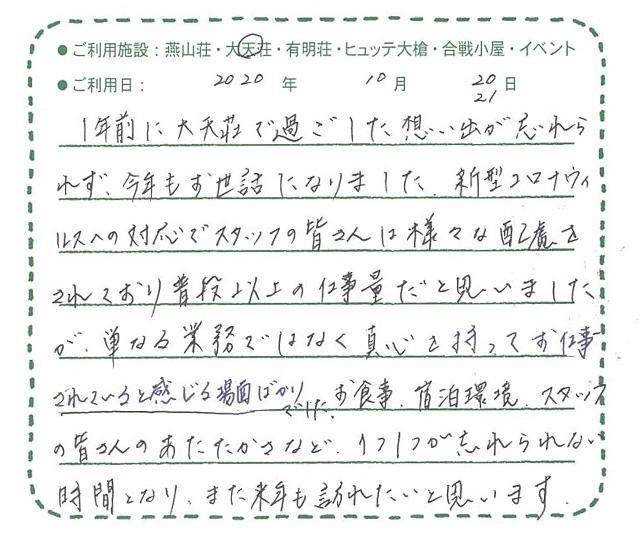 ●ご利用施設：燕山荘・大天荘・有明荘・ヒュッテ大槍・合戦小屋・イベント
●ご利用日： 2020 年 10 月 20 日
21
1年前に大天荘で過ごした想い出が忘れら
れず、今年もお世話になりました。新型コロナウィ
ルスへの対応でスタッフの皆さんは様々な配慮を
されており普段以上の仕事量だと思いました
が、単なる業務ではなく真心を持ってお仕事
されていると感じる場面ばかりでした。お食事、宿泊環境、スタッフ
の皆さんのあたたかさなど、1つ1つが忘れられない
時間となり、また来年も訪れたいと思います。